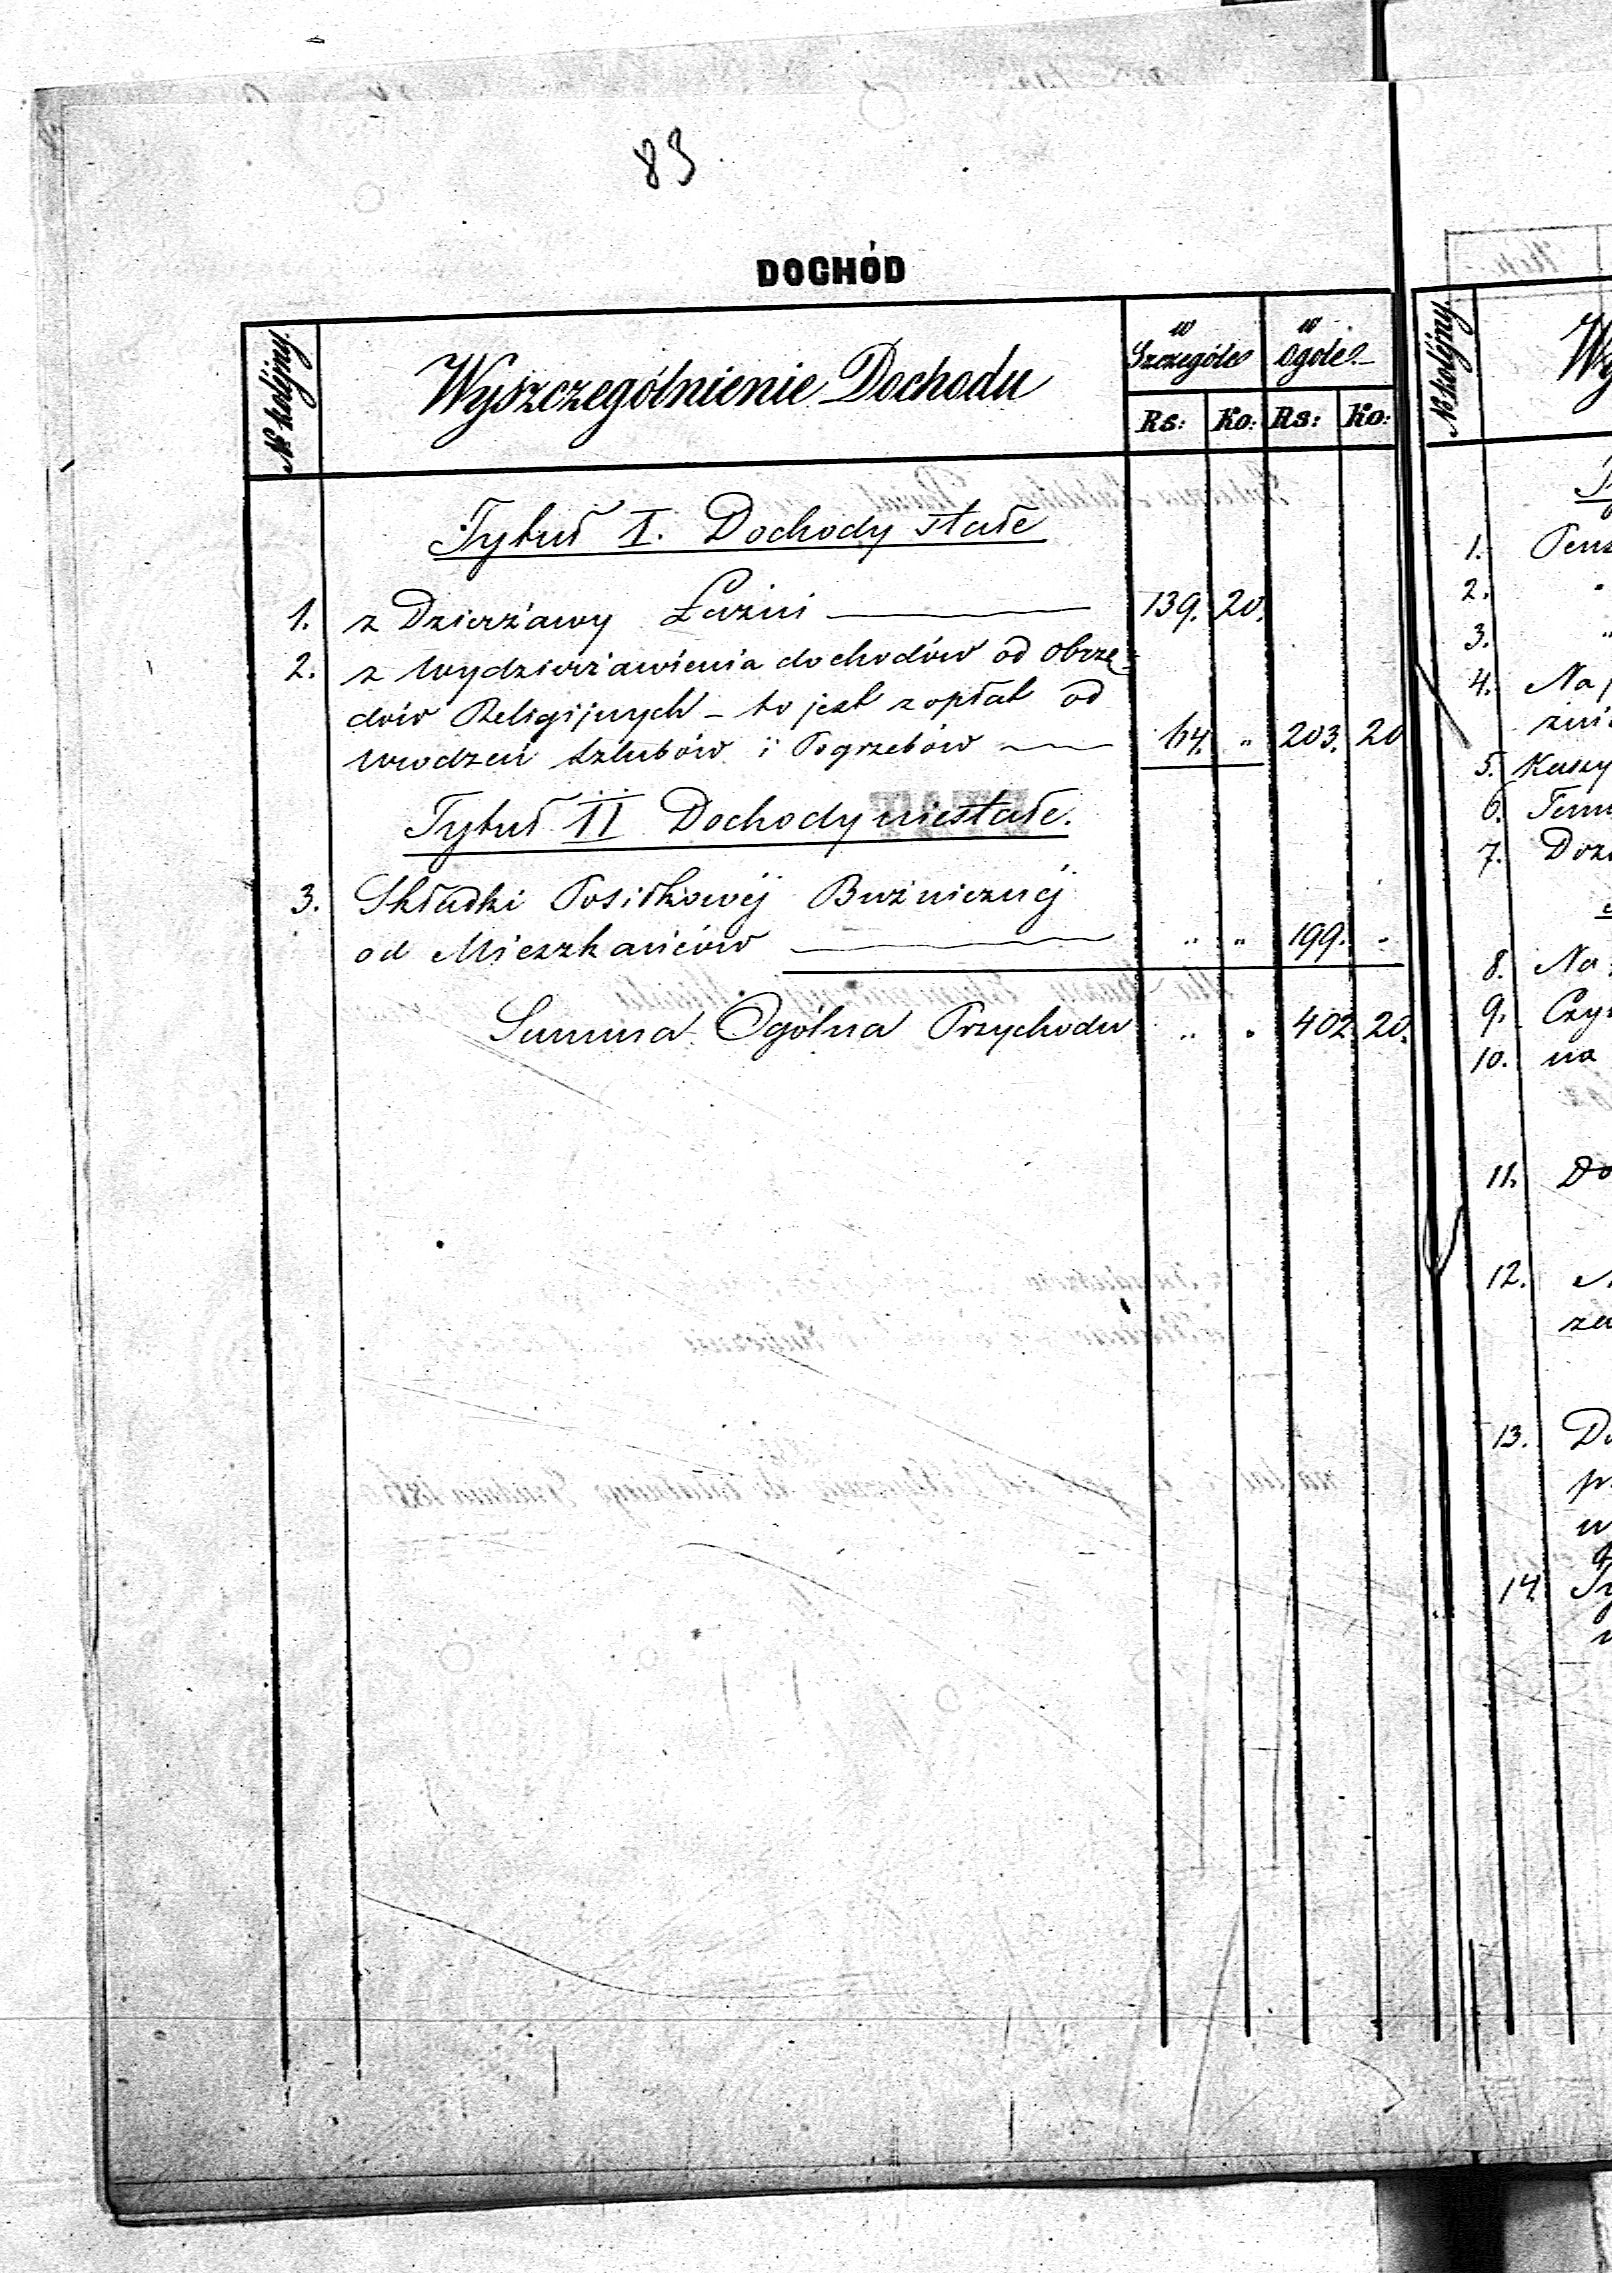 83
DOCHÓD
№ kolejny.
Wyszczególnienie Dochodu
w Szczególe
w ogóle
Rs: Ko: Rs: Ko:
Tytuł I. Dochody stałe
1. z Dzierżawy Łaźni 139. 20.
2. z Wydzierżawienia dochodów od obrzę-
dów Religijnych – to jest z opłat od
Urodzeń szlubów i Pogrzebów 64. " 203. 20
Tytuł II Dochody niestałe.
3. Składki Posiłkowéj Bużnicznéj
od Mieszkańców " " 199. "
Summa Ogólna Przychodu " " 402. 20.
№ kolejny.
1.
2. "
3. "
4. Na
5.
6.
7.
8. Na
9.
10. na
11. Do
12.
13.
14.